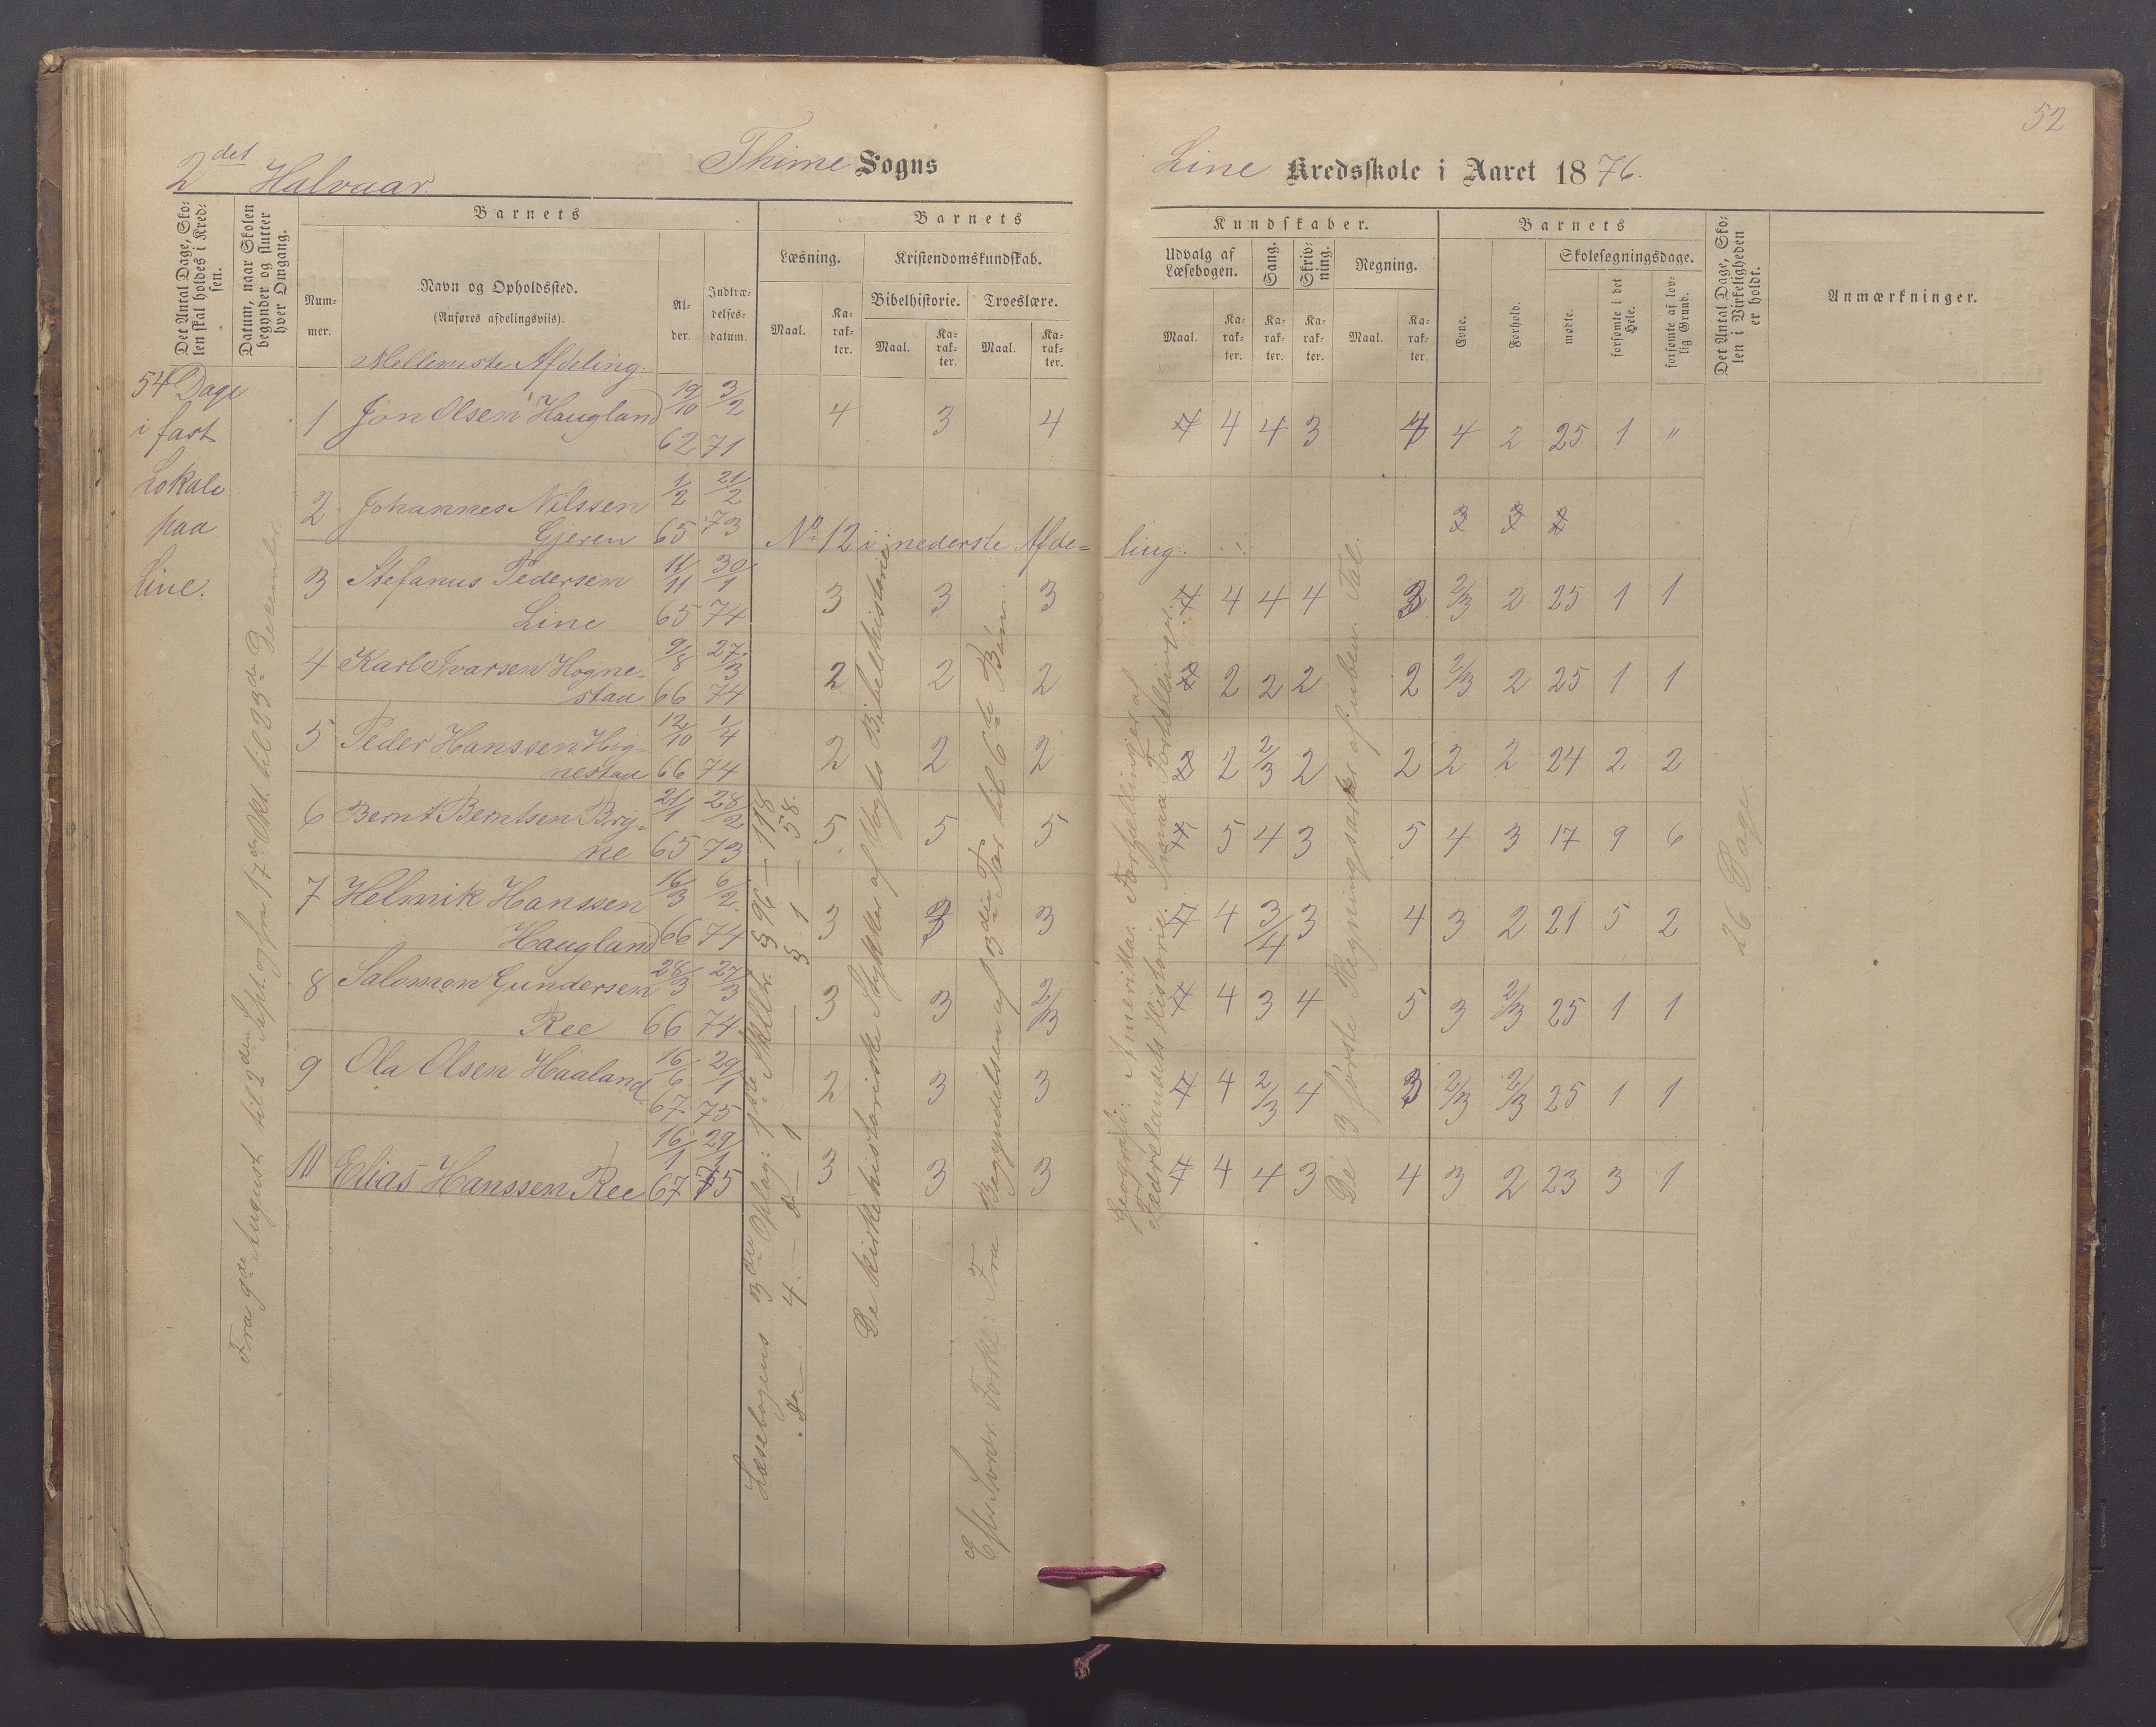 52
2det Halvaar.
Thime Sogns
Line Kredsskole i Aaret 1876.
Det Antal Dage, Sko-
len skal holdes i Kred-
sen.
Datum, naar Skolen
begynder og slutter
hver Omgang.
Barnets
Num-
mer.
Navn og Opholdssted.
(Anføres afdelingsviis).
Al-
der.
Indtræ-
delses-
datum.
Barnets
Læsning.
Maal.
Ka-
rak-
ter.
Kristendomskundskab.
Bibelhistorie.
Troeslære.
Maal.
Ka-
rak-
ter.
Maal.
Ka-
rak-
ter.
Kundskaber.
Udvalg af
Læsebogen.
Sang.
Skriv-
ning.
Regning.
Maal.
Ka-
rak-
ter.
Ka-
rak-
ter.
Ka-
rak-
ter.
Maal.
Ka-
rak-
ter.
Barnets
Evne.
Forhold.
Skolesøgningsdage.
mødte.
forsømte i det
Hele.
forsømte af lov-
lig Grund.
Det Antal Dage, Sko-
len i Virkeligheden
er holdt.
Anmærkninger.
Mellemste Afdeling.
54 Dage
i fast
Lokale
paa
Line.
Fra 9de August til 2den Sept. og fra 17de Okt. til 23de December.
1 Jon Olsen Haugland 19/10 62 3/2 71 4 3 4 4 4 3 4 4 2 25 1 "
2 Johannes Nilssen
Gjeren 1/2 65 21/2 73 No 12 i nederste Afde- ling.
3 Stefanus Pedersen
Line 11/11 65 30/1 74 3 3 3 4 4 4 3 2/3 2 25 1 1
4 Karl Ivarsen Hogne-
stad 9/8 66 27/3 74 2 2 2 2 2 2 2 2/3 2 25 1 1
5 Peder Hanssen Hog-
nestad 12/10 66 1/4 74 2 2 2 2 2/3 2 2 2 2 24 2 2
6 Bernt Berntsen Bry-
ne 21/1 65 28/2 73 5 5 5 5 4 3 5 4 3 17 9 6
7 Helmik Hanssen
Haugland 16/3 66 6/2 74 3 3 3 4 3/4 3 4 3 2 21 5 2
8 Salomon Gundersen
Ree 28/3 66 27/3 74 3 3 2/3 4 3 4 5 3 2/3 25 1 1
9 Ola Olsen Haaland 16/6 67 29/1 75 2 3 3 4 2/3 4 3 2/3 2/3 25 1 1
10 Elias Hanssen Ree 16/1 67 29/1 75 3 3 3 4 4 3 4 3 2 23 3 1
Læsebogens 3die Oplag: 1ste Skilltr. § 96 — 118
Do — 4 — Do — 1 — § 1 — 58.
De kirkehistoriske Stykker af Vogts Bibelhistorie
Efter Sverdr. Forkl.: Fra Begyndelsen af 3die Par til 6te Bøn.
Geografi: Amerika. Fortællinger af
Fædrelandets Historie. Smaa Fortællinger.
De 3 første Regningsarter af uben. Tal.
26 Dage.